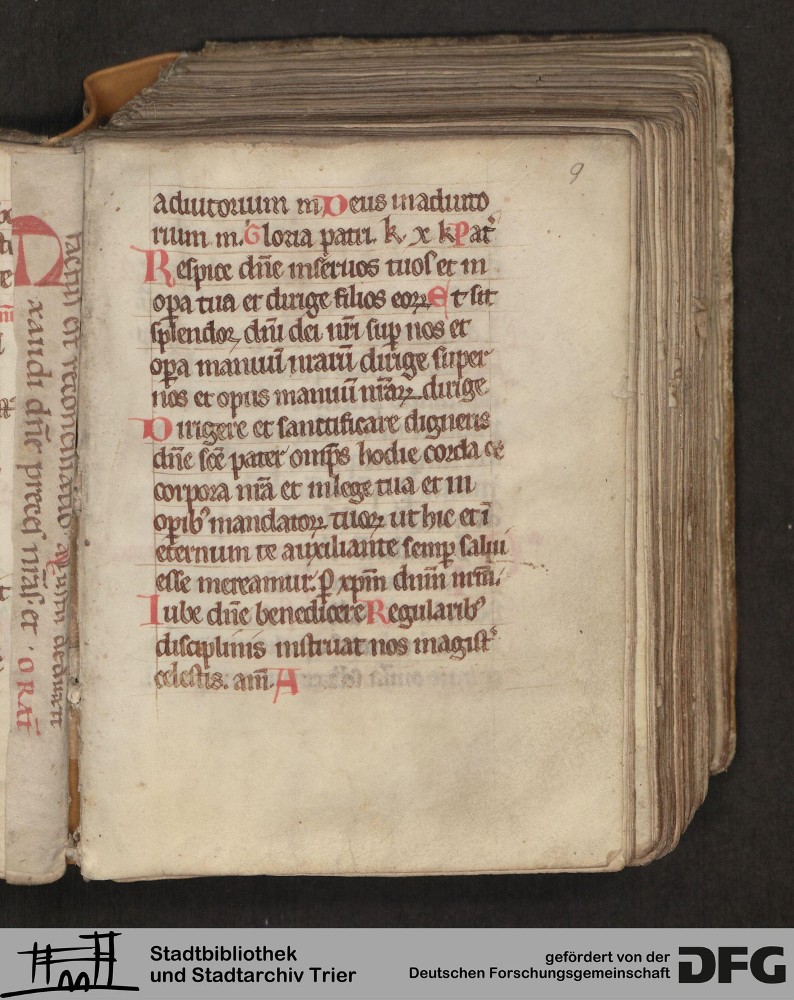 9
adiutorium m Deus inadiuto
rium m. Gloria patri. k. x k Pat᷒
Respice dn̄e inseruos tuos et in
oꝑa tua et dirige filios eoꝝ Et sit
splendor dn̄i dei nr̄i suꝑ nos et
oꝑa manuū nr̄arū dirige super
nos et opus manuū nr̄aꝝ dirige
Dirigere et sanctificare digneris
dn̄e sc̄e pater omp̄s hodie corda et
corpora nr̄a et inlege tua et in
oꝑibꝰ mandatoꝝ tuoꝝ ut hic et ī
eternum te auxiliante semꝑ salui
esse mereamur. P̱ xp̄m dn̄m nr̄m.
Iube dn̄e benedicere Regularibꝰ
disciplinis instruat nos magist᷒
celestis. am̄. A
xaudi dn̄e preces nr̄as et ORAT̄
Stadtbibliothek
und Stadtarchiv Trier
gefördert von der
Deutschen Forschungsgemeinschaft
DFG